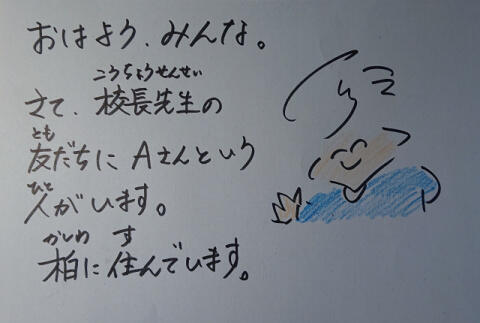 おはよう、みんな。
こうちょうせんせい
さて、校長先生の
とも
友だちにAさんという
ひと
人がいます。
かしわ す
柏に住んでいます。